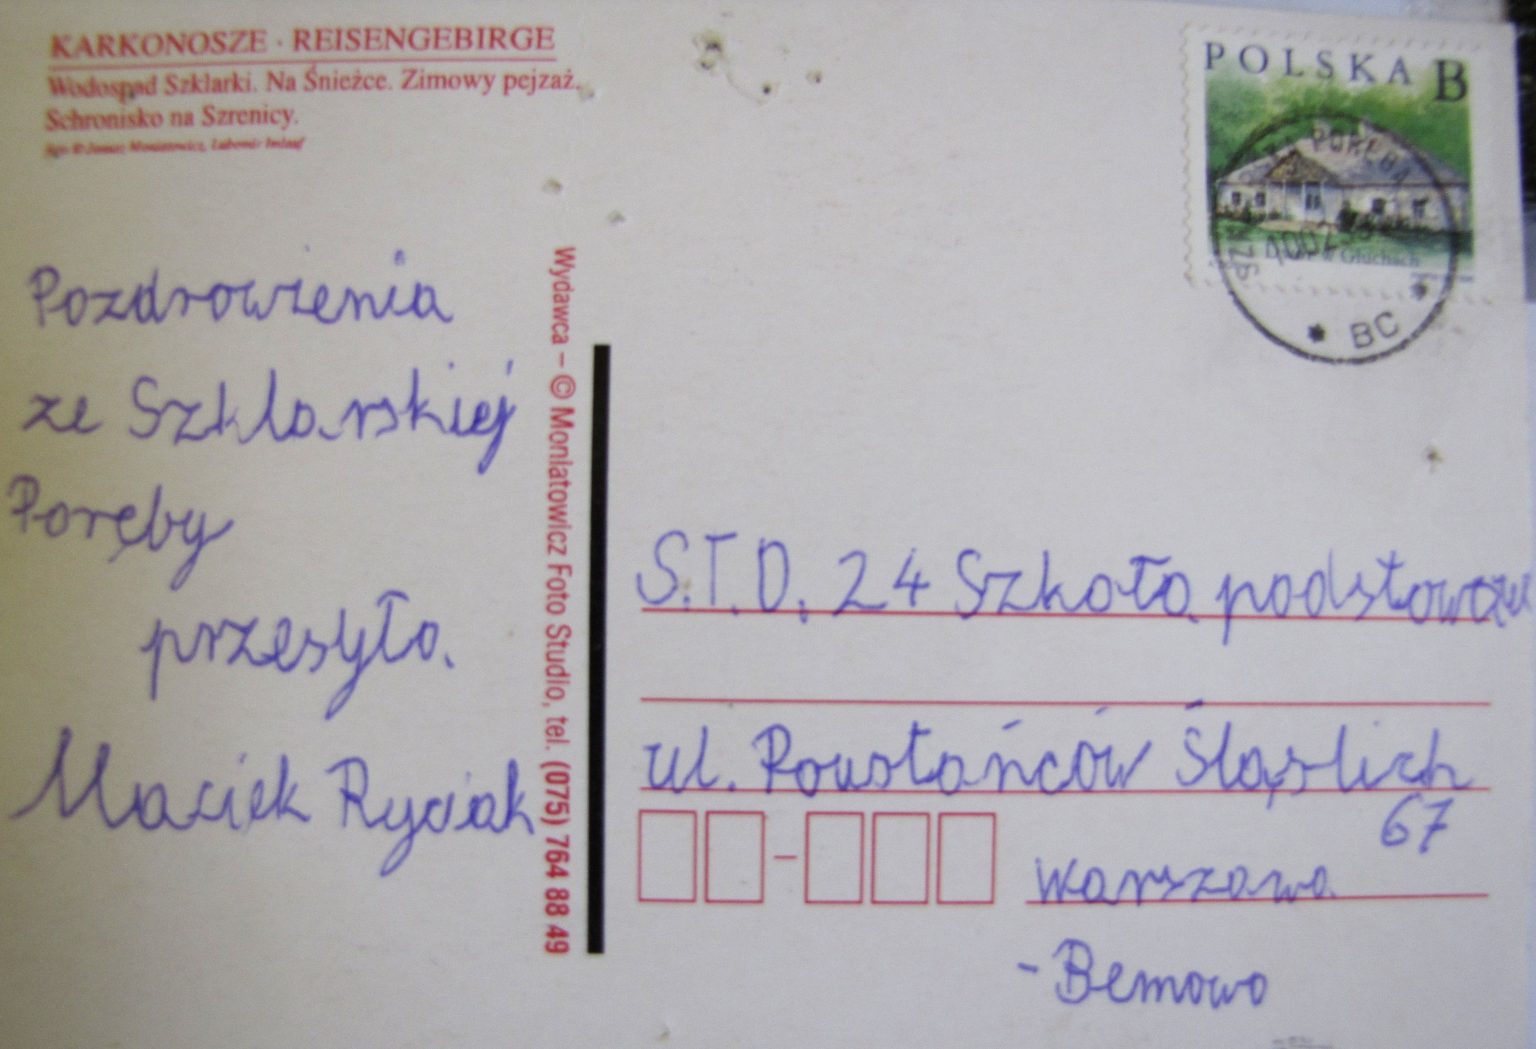 KARKONOSZE · REISENGEBIRGE
Wodospad Szklarki. Na Śnieżce. Zimowy pejzaż.
Schronisko na Szrenicy.
Pozdrowienia
ze Szklarskiej
Poręby
przesyła
Maciek Ryciak
Wydawca – © Moniatowicz Foto Studio, tel. (075) 764 88 49
POLSKA B
PORĘBA
BC
S.T.D. 24 Szkoła podstawowa
ul. Powstańców Śląslich
67
Warszawa
- Bemowo